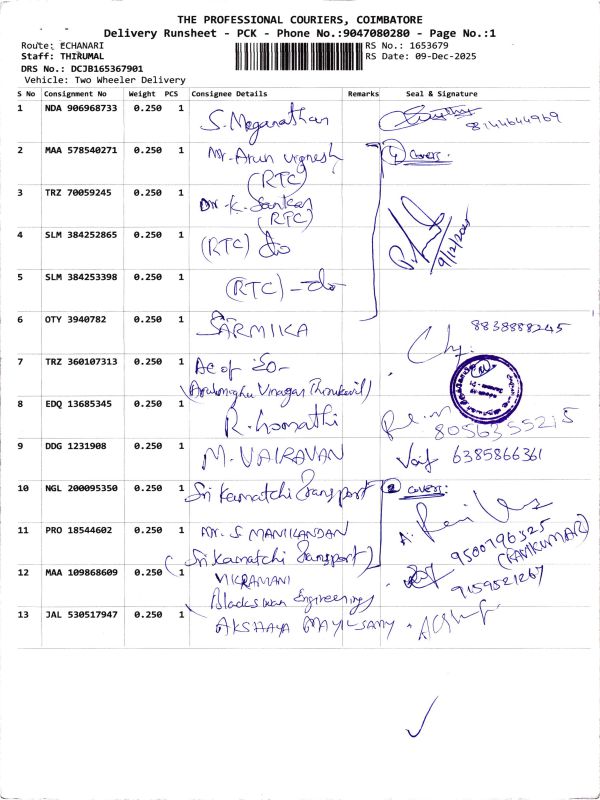 THE PROFESSIONAL COURIERS, COIMBATORE
Delivery Runsheet - PCK - Phone No.:9047080280 - Page No.:1
Route: ECHANARI
Staff: THIRUMAL
DRS No.: DCJB165367901
Vehicle: Two Wheeler Delivery
RS No.: 1653679
RS Date: 09-Dec-2025
S No Consignment No Weight PCS Consignee Details Remarks Seal & Signature
1 NDA 906968733 0.250 1 S. Meganathan 8144644969
2 MAA 578540271 0.250 1 Mr. Arun vignesh (4) covers.
(RTC)
3 TRZ 70059245 0.250 1 Mr. K. Sankar
(RTC)
4 SLM 384252865 0.250 1 (RTC) do 9/12/2025
5 SLM 384253398 0.250 1 (RTC) - do
6 OTY 3940782 0.250 1 SARMIKA 8838888245
7 TRZ 360107313 0.250 1 AC of EO-
8 EDQ 13685345 0.250 1 R. Gomathi 8056355215
9 DDG 1231908 0.250 1 M. VAIRAVAN 6385866361
10 NGL 200095350 0.250 1 Sri Kamatchi Transport (2) covers.
11 PRO 18544602 0.250 1 Mr. S MANIKANDAN
(Sri Kamatchi Transport) 9500796325
(RAMKUMAR)
12 MAA 109868609 0.250 1 VIKRAMANI 9159521267
Blackswan Engineering
13 JAL 530517947 0.250 1 AKSHAYA MAYILSAMY